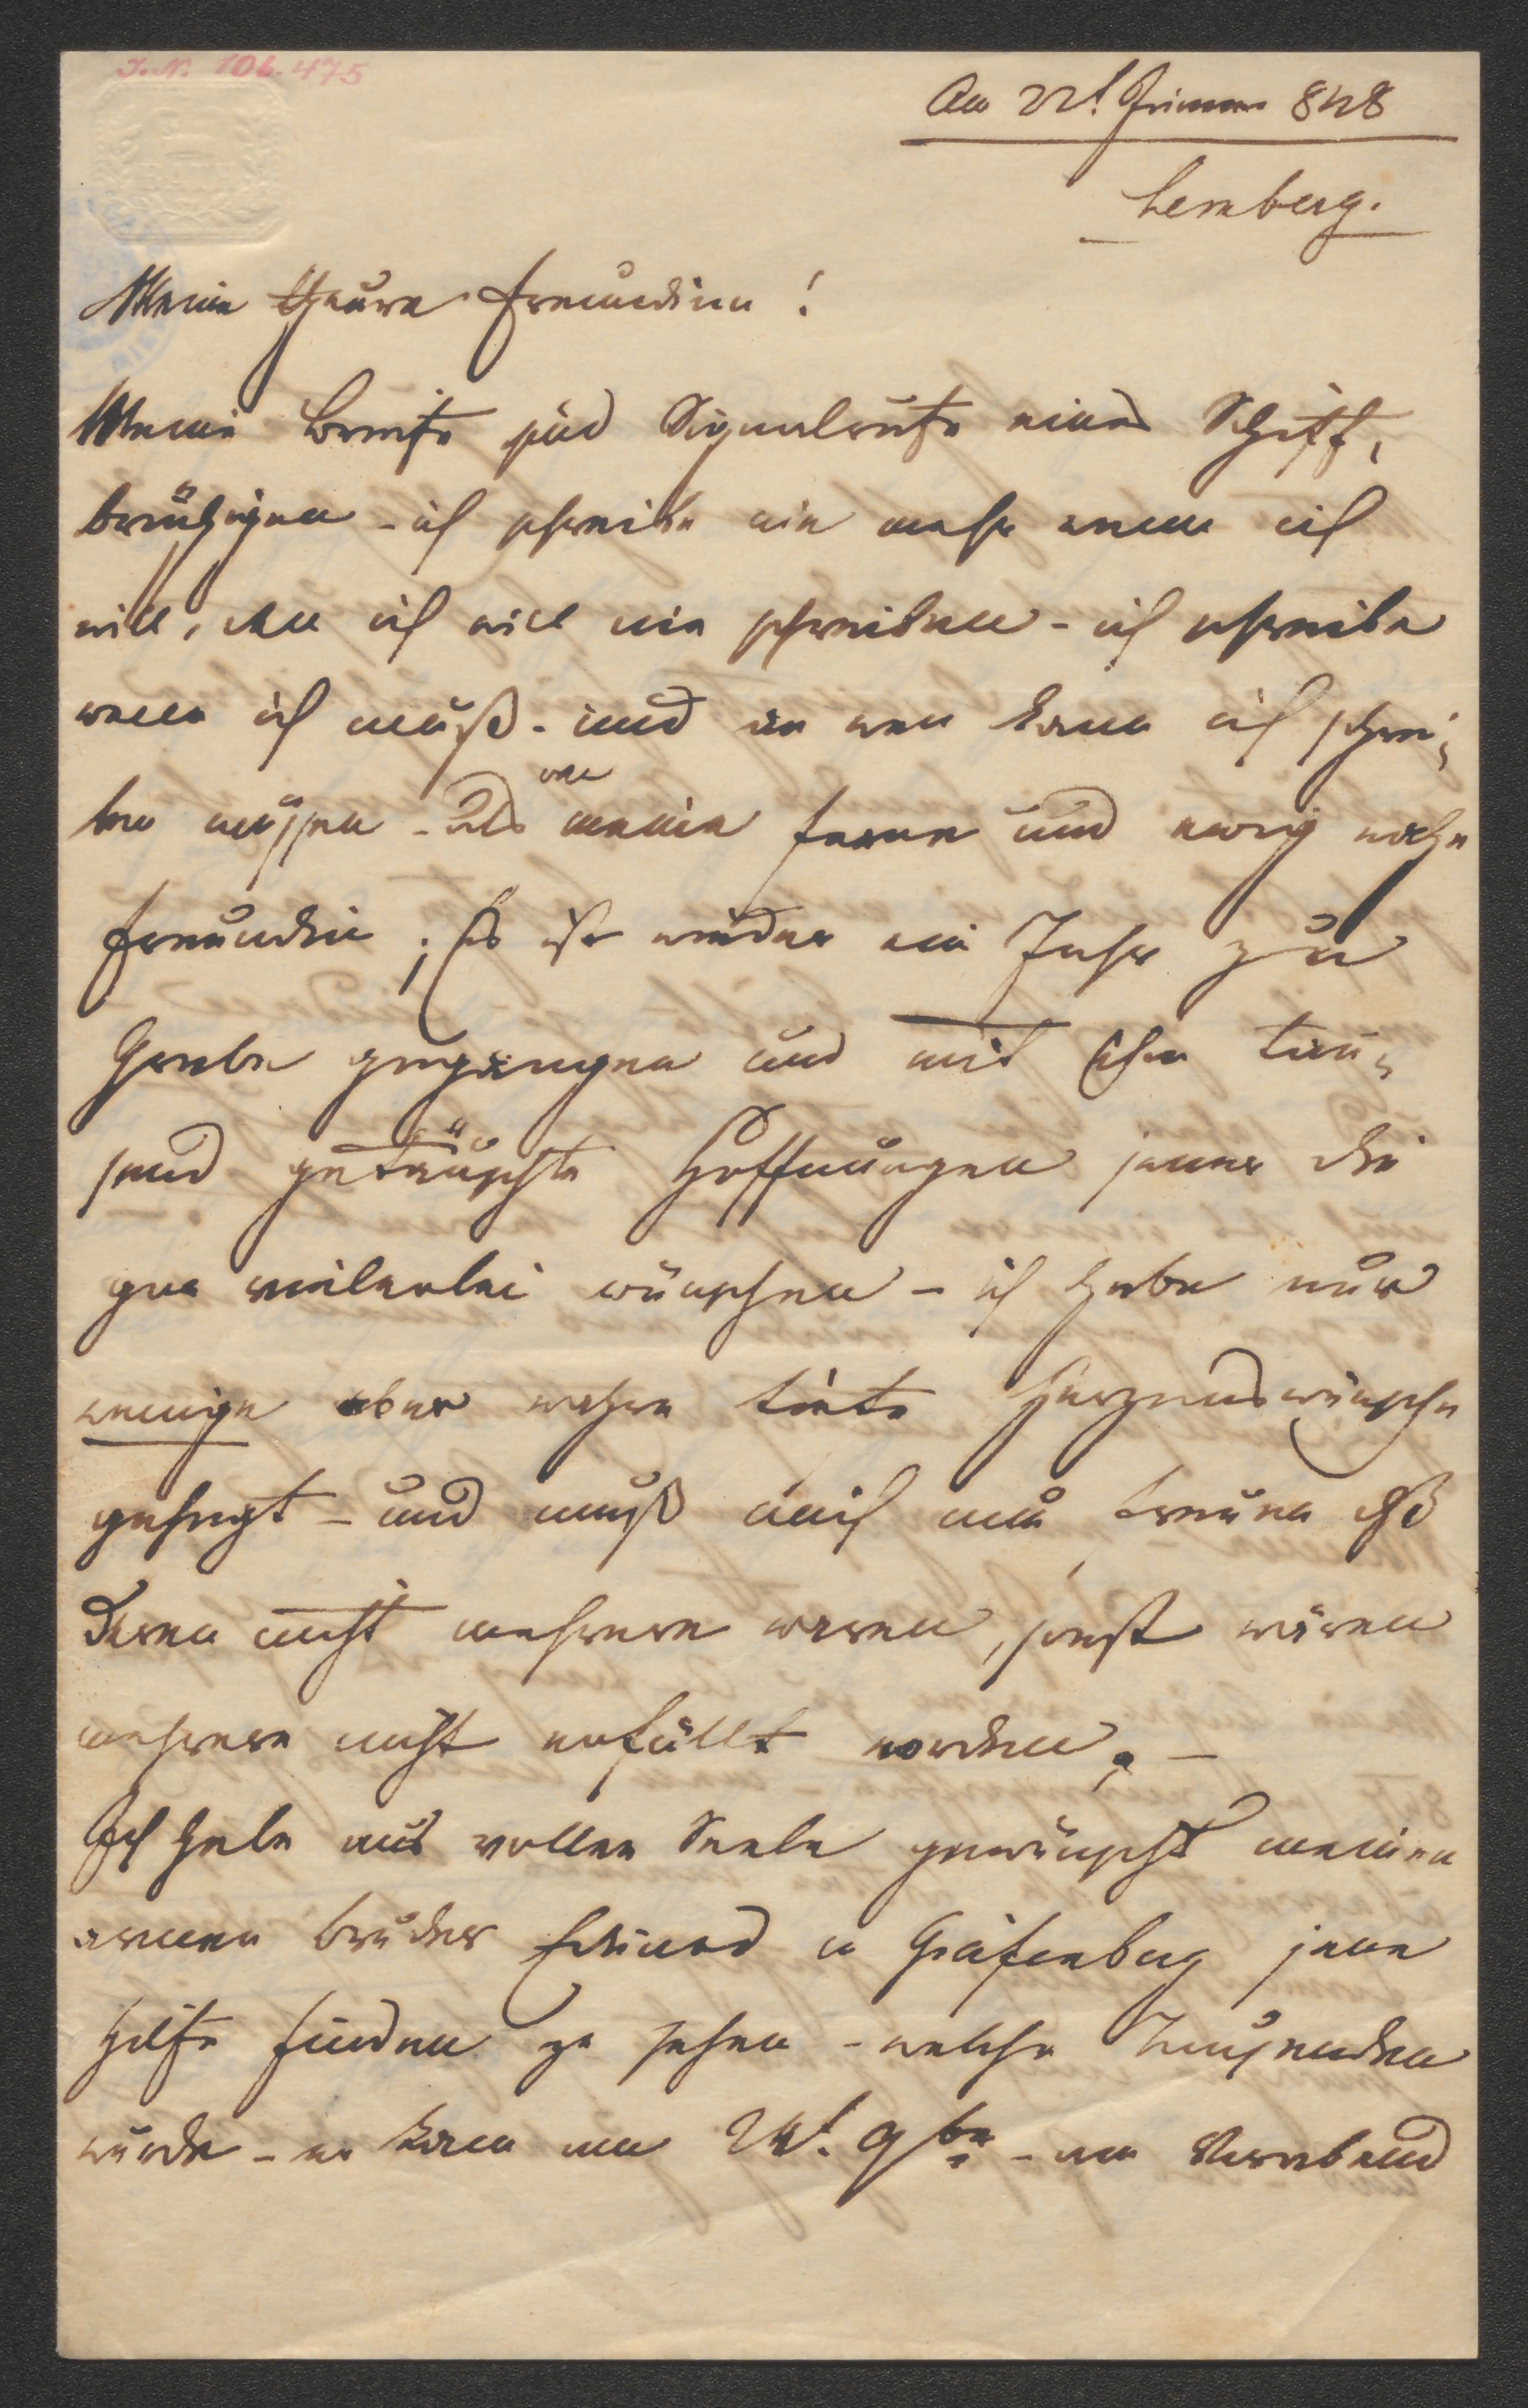 I. N. 106.475
Am 22t. Jänner 848
Lemberg.
Meine theure Freundinn!
Meine Briefe sind Signalrufe eines Schiff,
brüchigen – ich schreibe nie mehr wenn ich
will, den ich will nie schreiben – ich schreibe
wenn ich muß – und an wen kann ich schrei,
ben müssen – Als an meine ferne und ewig nahe
Freundin; Es ist wieder ein Jahr zu
Grabe gegangen und mit ihm tau,
send getäuschte Hoffnungen jener die
gar vielerlei wünschen – ich habe nur
wenige aber wahre tiefe Herzenswünsche
gehegt – und muß mich nun freuen daß
deren nicht mehrere waren, sonst wären
mehrere nicht erfüllt worden. –
Ich habe aus voller Seele gewünscht meinen
armen Bruder Eduard in Gräfenberg jene
Hilfe finden zu sehen – welche Tausenden
wurde – er kam am 24t. 9br – am Vorabend